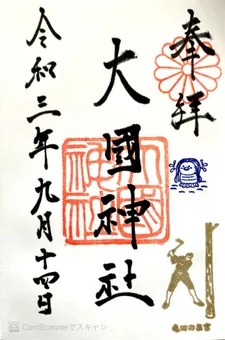 奉拝
大國神社
令和三年九月十四日
CamScannerでスキャン